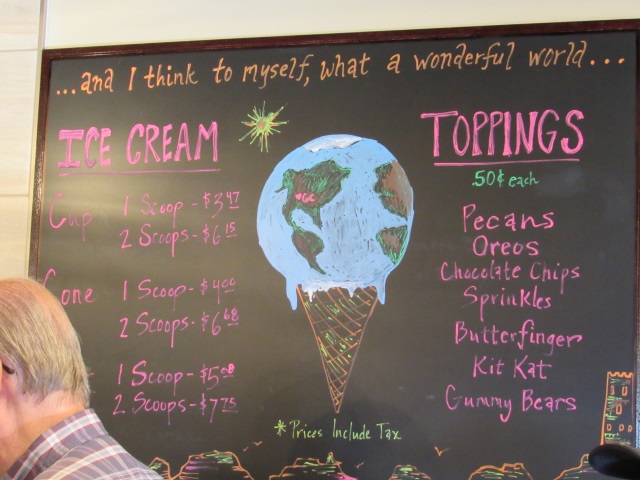 ...and I think to myself, what a wonderful world...
ICE CREAM
Cup 1 Scoop - $3.47
2 Scoops - $6.15
Cone 1 Scoop - $4.00
2 Scoops - $6.68
1 Scoop - $5.08
2 Scoops - $7.75
GC
* Prices Include Tax
TOPPINGS
.50¢ each
Pecans
Oreos
Chocolate Chips
Sprinkles
Butterfinger
Kit Kat
Gummy Bears